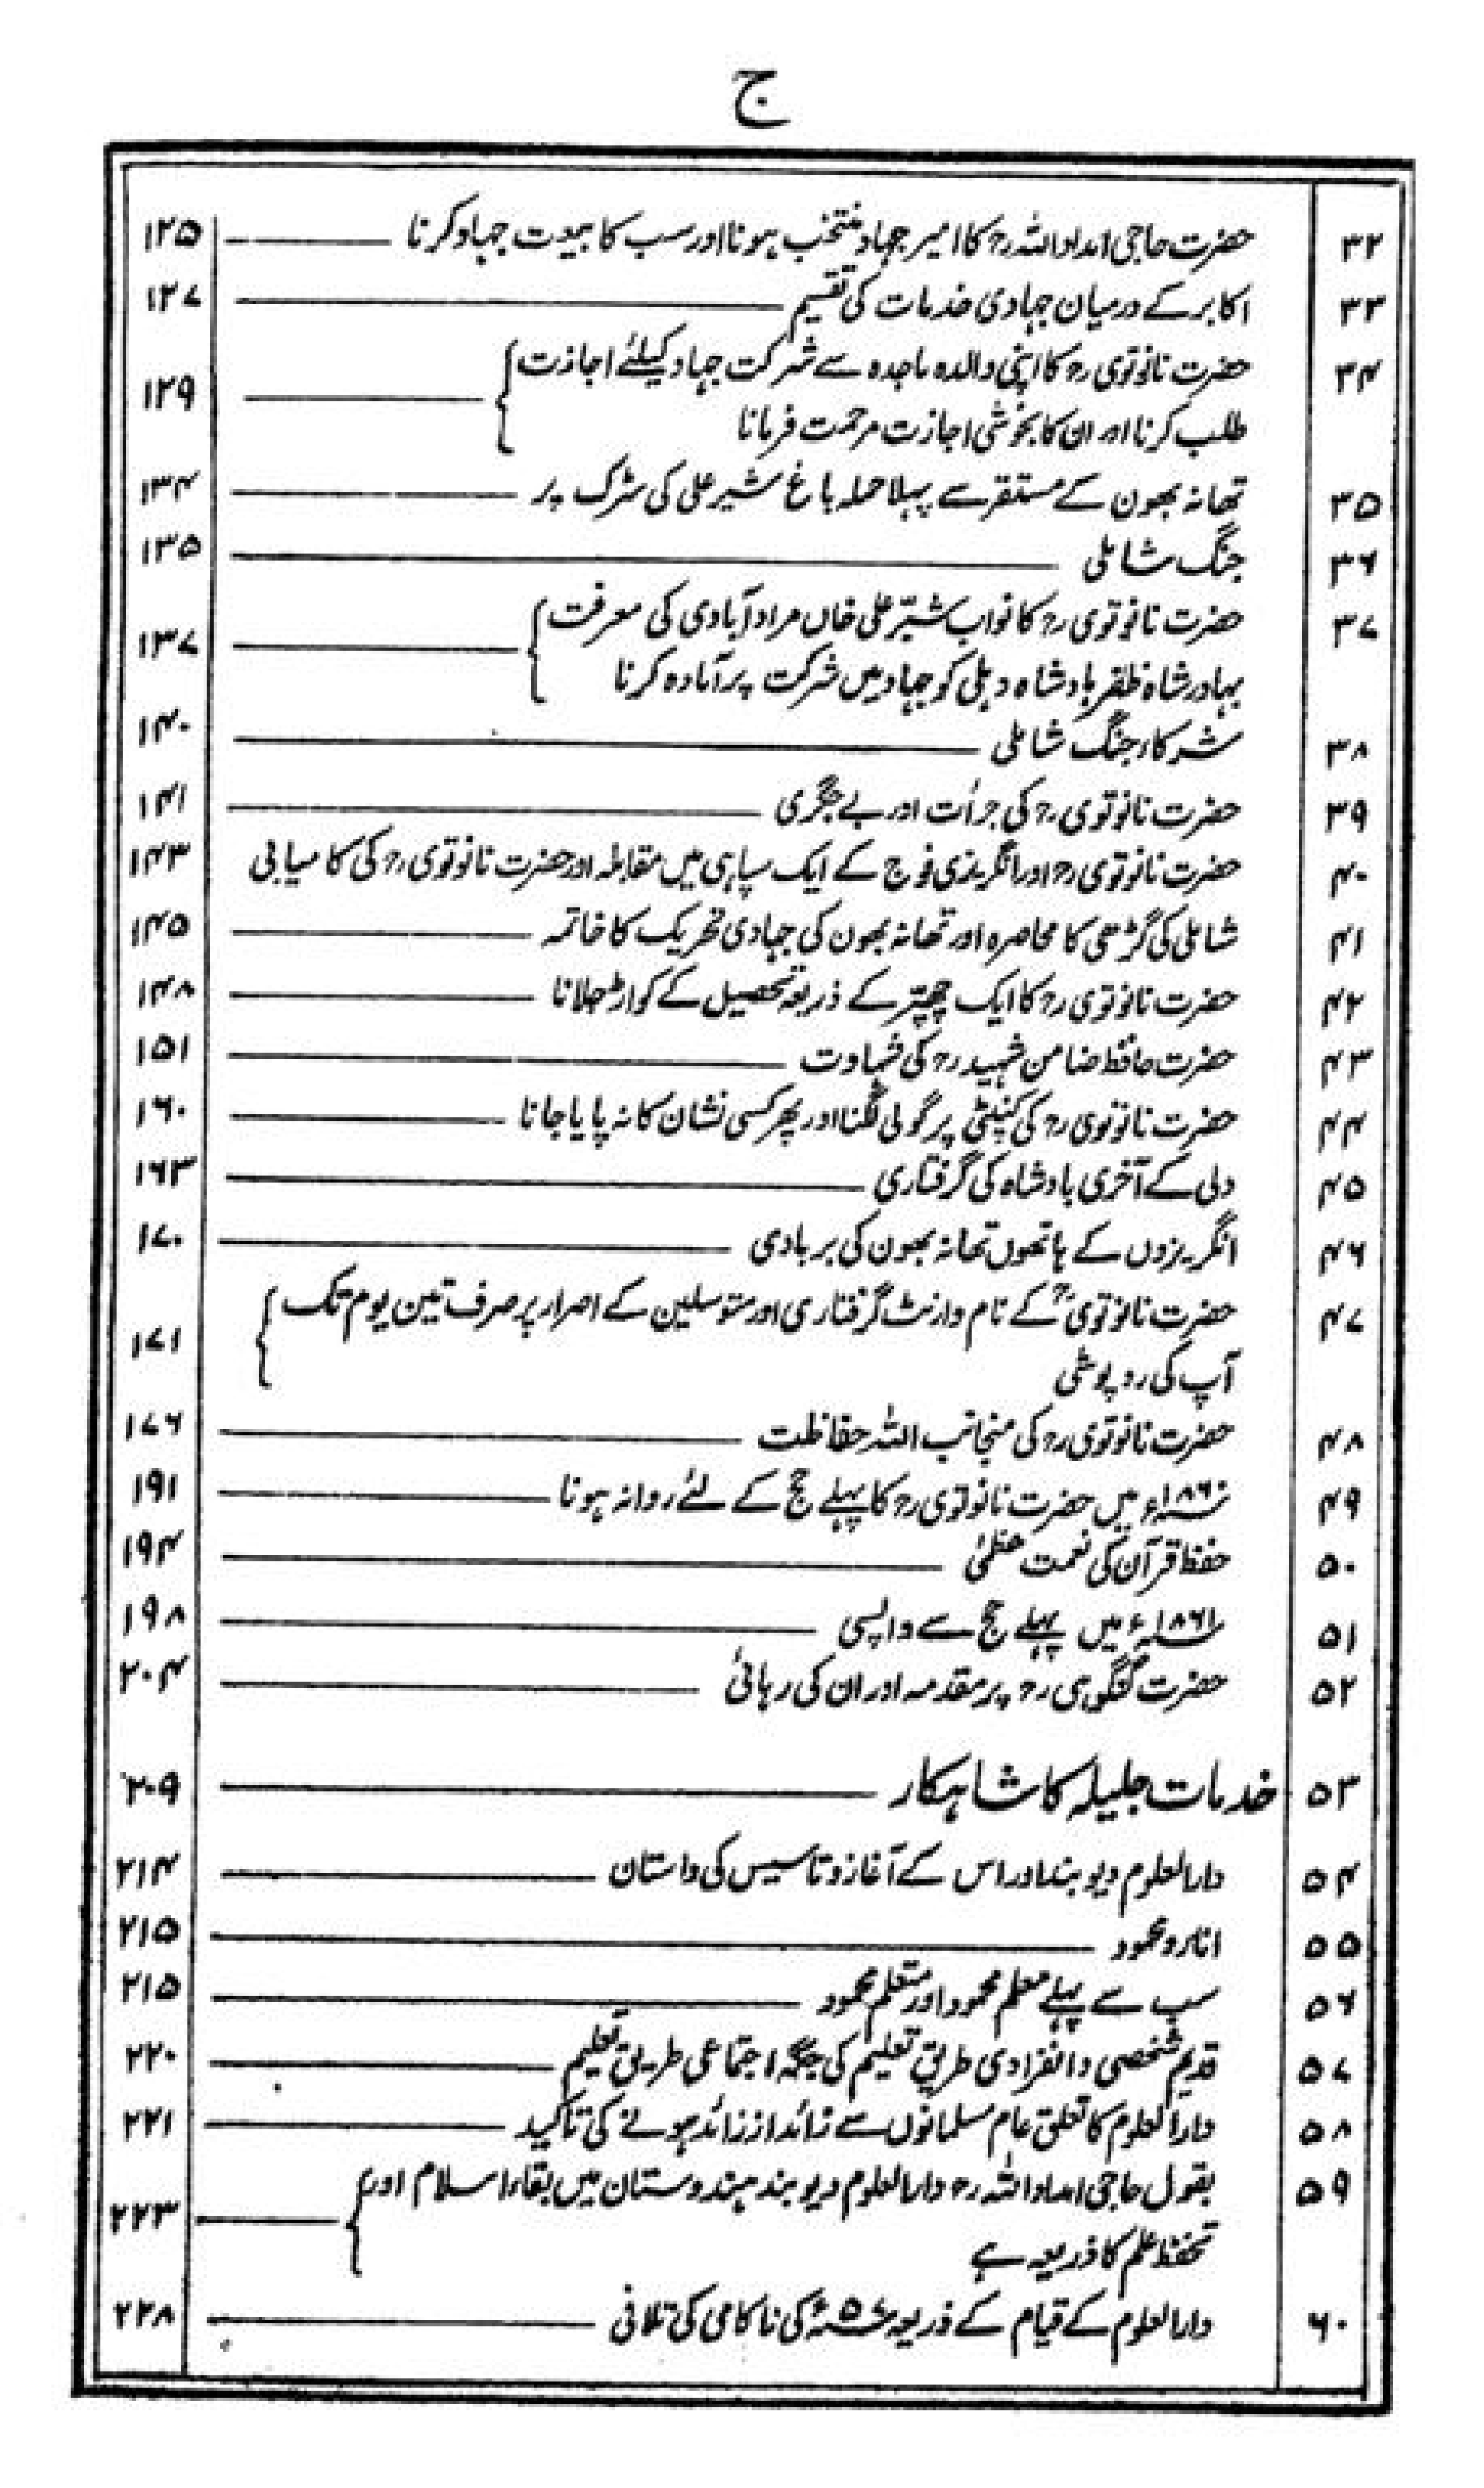 ج
۳۲ حضرت حاجی امداد اللہ رح کا امیر جہاد منتخب ہونا اور سب کا بیعت جہاد کرنا ۱۲۵
۳۳ اکابر کے درمیان جہادی خدمات کی تقسیم ۱۲۷
۳۴ حضرت نانوتوی رح کا اپنی والدہ ماجدہ سے شرکت جہاد کیلئے اجازت
طلب کرنا اور ان کا بخوشی اجازت مرحمت فرمانا ۱۲۹
۳۵ تھانہ بھون کے مستقر سے پہلا حملہ باغ شیر علی کی سڑک پر ۱۳۴
۳۶ جنگ شاملی ۱۳۵
۳۷ حضرت نانوتوی رح کا نواب شبیر علی خاں مرادآبادی کی معرفت
بہادر شاہ ظفر بادشاہ دہلی کو جہاد میں شرکت پر آمادہ کرنا ۱۳۷
۳۸ شرکاء جنگ شاملی ۱۴۰
۳۹ حضرت نانوتوی رح کی جرأت اور بے جگری ۱۴۱
۴۰ حضرت نانوتوی رح اور انگریزی فوج کے ایک سپاہی میں مقابلہ اور حضرت نانوتوی رح کی کامیابی ۱۴۳
۴۱ شاملی کی گڑھی کا محاصرہ اور تھانہ بھون کی جہادی تحریک کا خاتمہ ۱۴۵
۴۲ حضرت نانوتوی رح کا ایک چھپر کے ذریعہ تحصیل کے کواڑ جلانا ۱۴۸
۴۳ حضرت حافظ ضامن شہید رح کی شہادت ۱۵۱
۴۴ حضرت نانوتوی رح کی کنپٹی پر گولی لگنا اور پھر کسی نشان کا نہ پایا جانا ۱۶۰
۴۵ دلی کے آخری بادشاہ کی گرفتاری ۱۶۳
۴۶ انگریزوں کے ہاتھوں تھانہ بھون کی بربادی ۱۷۰
۴۷ حضرت نانوتویؒ کے نام وارنٹ گرفتاری اور متوسلین کے اصرار پر صرف تین یوم تک
آپ کی روپوشی ۱۷۱
۴۸ حضرت نانوتوی رح کی منجانب اللہ حفاظت ۱۷۶
۴۹ ۱۸۶۰ء میں حضرت نانوتوی رح کا پہلے حج کے لئے روانہ ہونا ۱۹۱
۵۰ حفظ قرآن کی نعمت عظمیٰ ۱۹۴
۵۱ ۱۸۶۱ء میں پہلے حج سے واپسی ۱۹۸
۵۲ حضرت گنگوہی رح پر مقدمہ اور ان کی رہائی ۲۰۴
۵۳ خدمات جلیلہ کا شاہکار ۲۰۹
۵۴ دارالعلوم دیوبند اور اس کے آغاز و تاسیس کی داستان ۲۱۴
۵۵ انار و محمود ۲۱۵
۵۶ سب سے پہلے معلم محمود اور متعلم محمود ۲۱۵
۵۷ قدیم شخصی و انفرادی طریق تعلیم کی جگہ اجتماعی طریق تعلیم ۲۲۰
۵۸ دارالعلوم کا تعلق عام مسلمانوں سے زائد از زائد ہونے کی تاکید ۲۲۱
۵۹ بقول حاجی امداد اللہ رح دارالعلوم دیوبند ہندوستان میں بقاء اسلام اور
تحفظ علم کا ذریعہ ہے ۲۲۳
۶۰ دارالعلوم کے قیام کے ذریعہ ۵۷ء کی ناکامی کی تلافی ۲۲۸